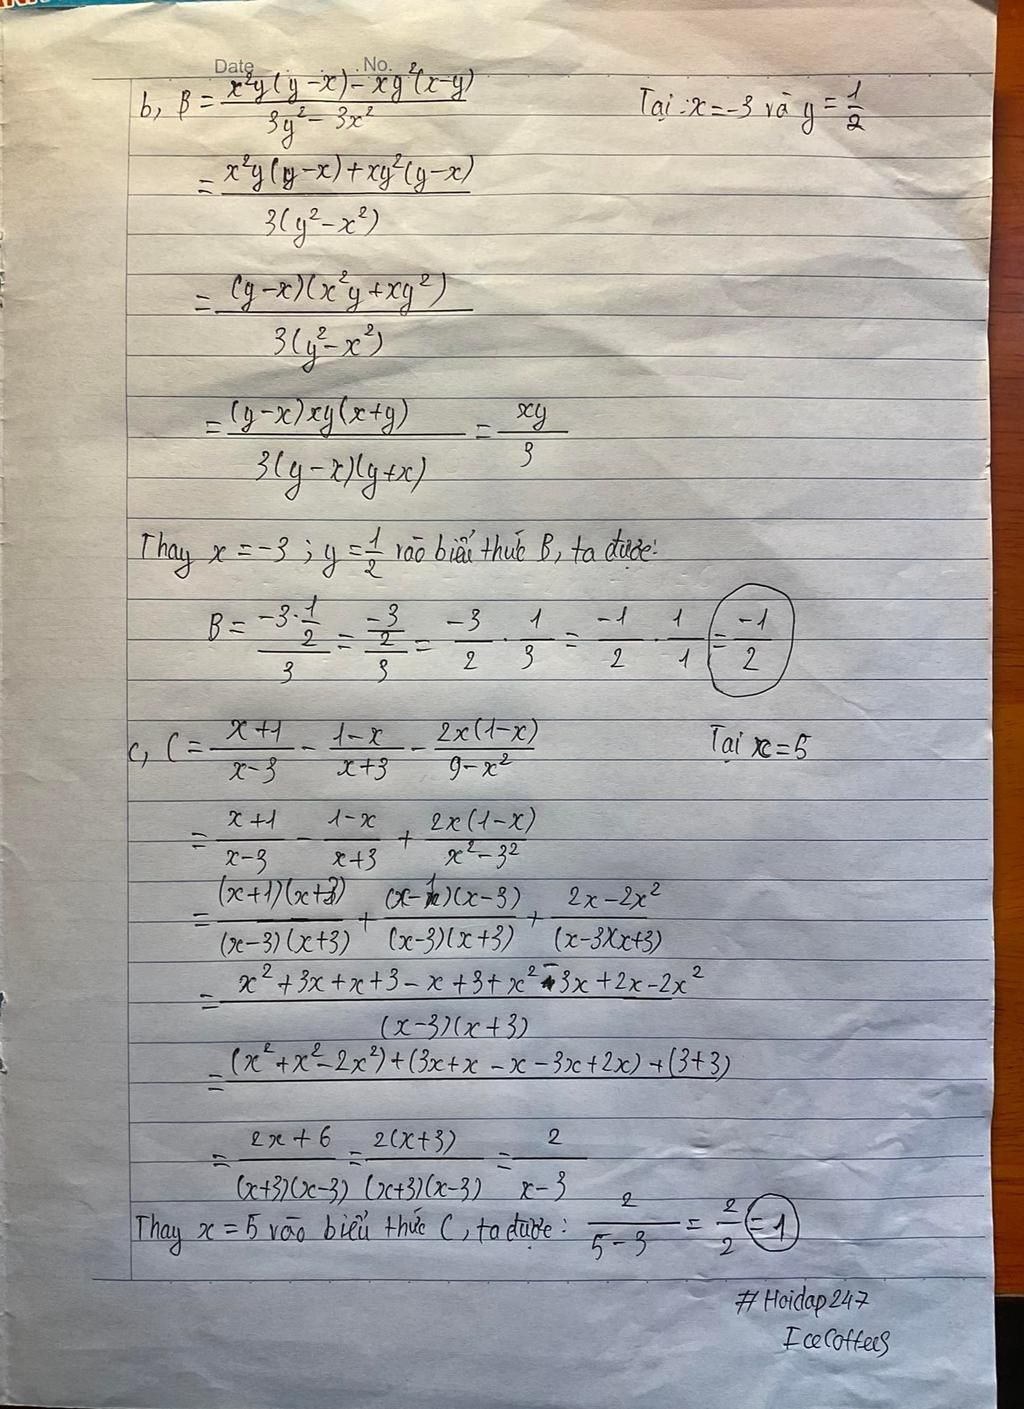 Date No.
b, B = x²y(y-x) - xy²(x-y) / 3y² - 3x² Tại : x = -3 và y = 1/2
= x²y(y-x) + xy²(y-x) / 3(y² - x²)
= (y-x)(x²y + xy²) / 3(y² - x²)
= (y-x)xy(x+y) / 3(y-x)(y+x) = xy / 3
Thay x = -3 ; y = 1/2 vào biểu thức B, ta được:
B = -3 · 1/2 / 3 = -3/2 / 3 = -3/2 · 1/3 = -1/2 · 1/1 = -1/2
c, C = x+1 / x-3 - 1-x / x+3 - 2x(1-x) / 9-x² Tại x = 5
= x+1 / x-3 - 1-x / x+3 + 2x(1-x) / x² - 3²
= (x+1)(x+3) / (x-3)(x+3) + (x-1)(x-3) / (x-3)(x+3) + 2x - 2x² / (x-3)(x+3)
= x² + 3x + x + 3 - x + 3 + x² - 3x + 2x - 2x² / (x-3)(x+3)
= (x² + x² - 2x²) + (3x + x - x - 3x + 2x) + (3+3)
= 2x + 6 / (x+3)(x-3) = 2(x+3) / (x+3)(x-3) = 2 / x-3
Thay x = 5 vào biểu thức C, ta được: 2 / 5-3 = 2/2 = 1
# Hoidap247
IceCoffeeS